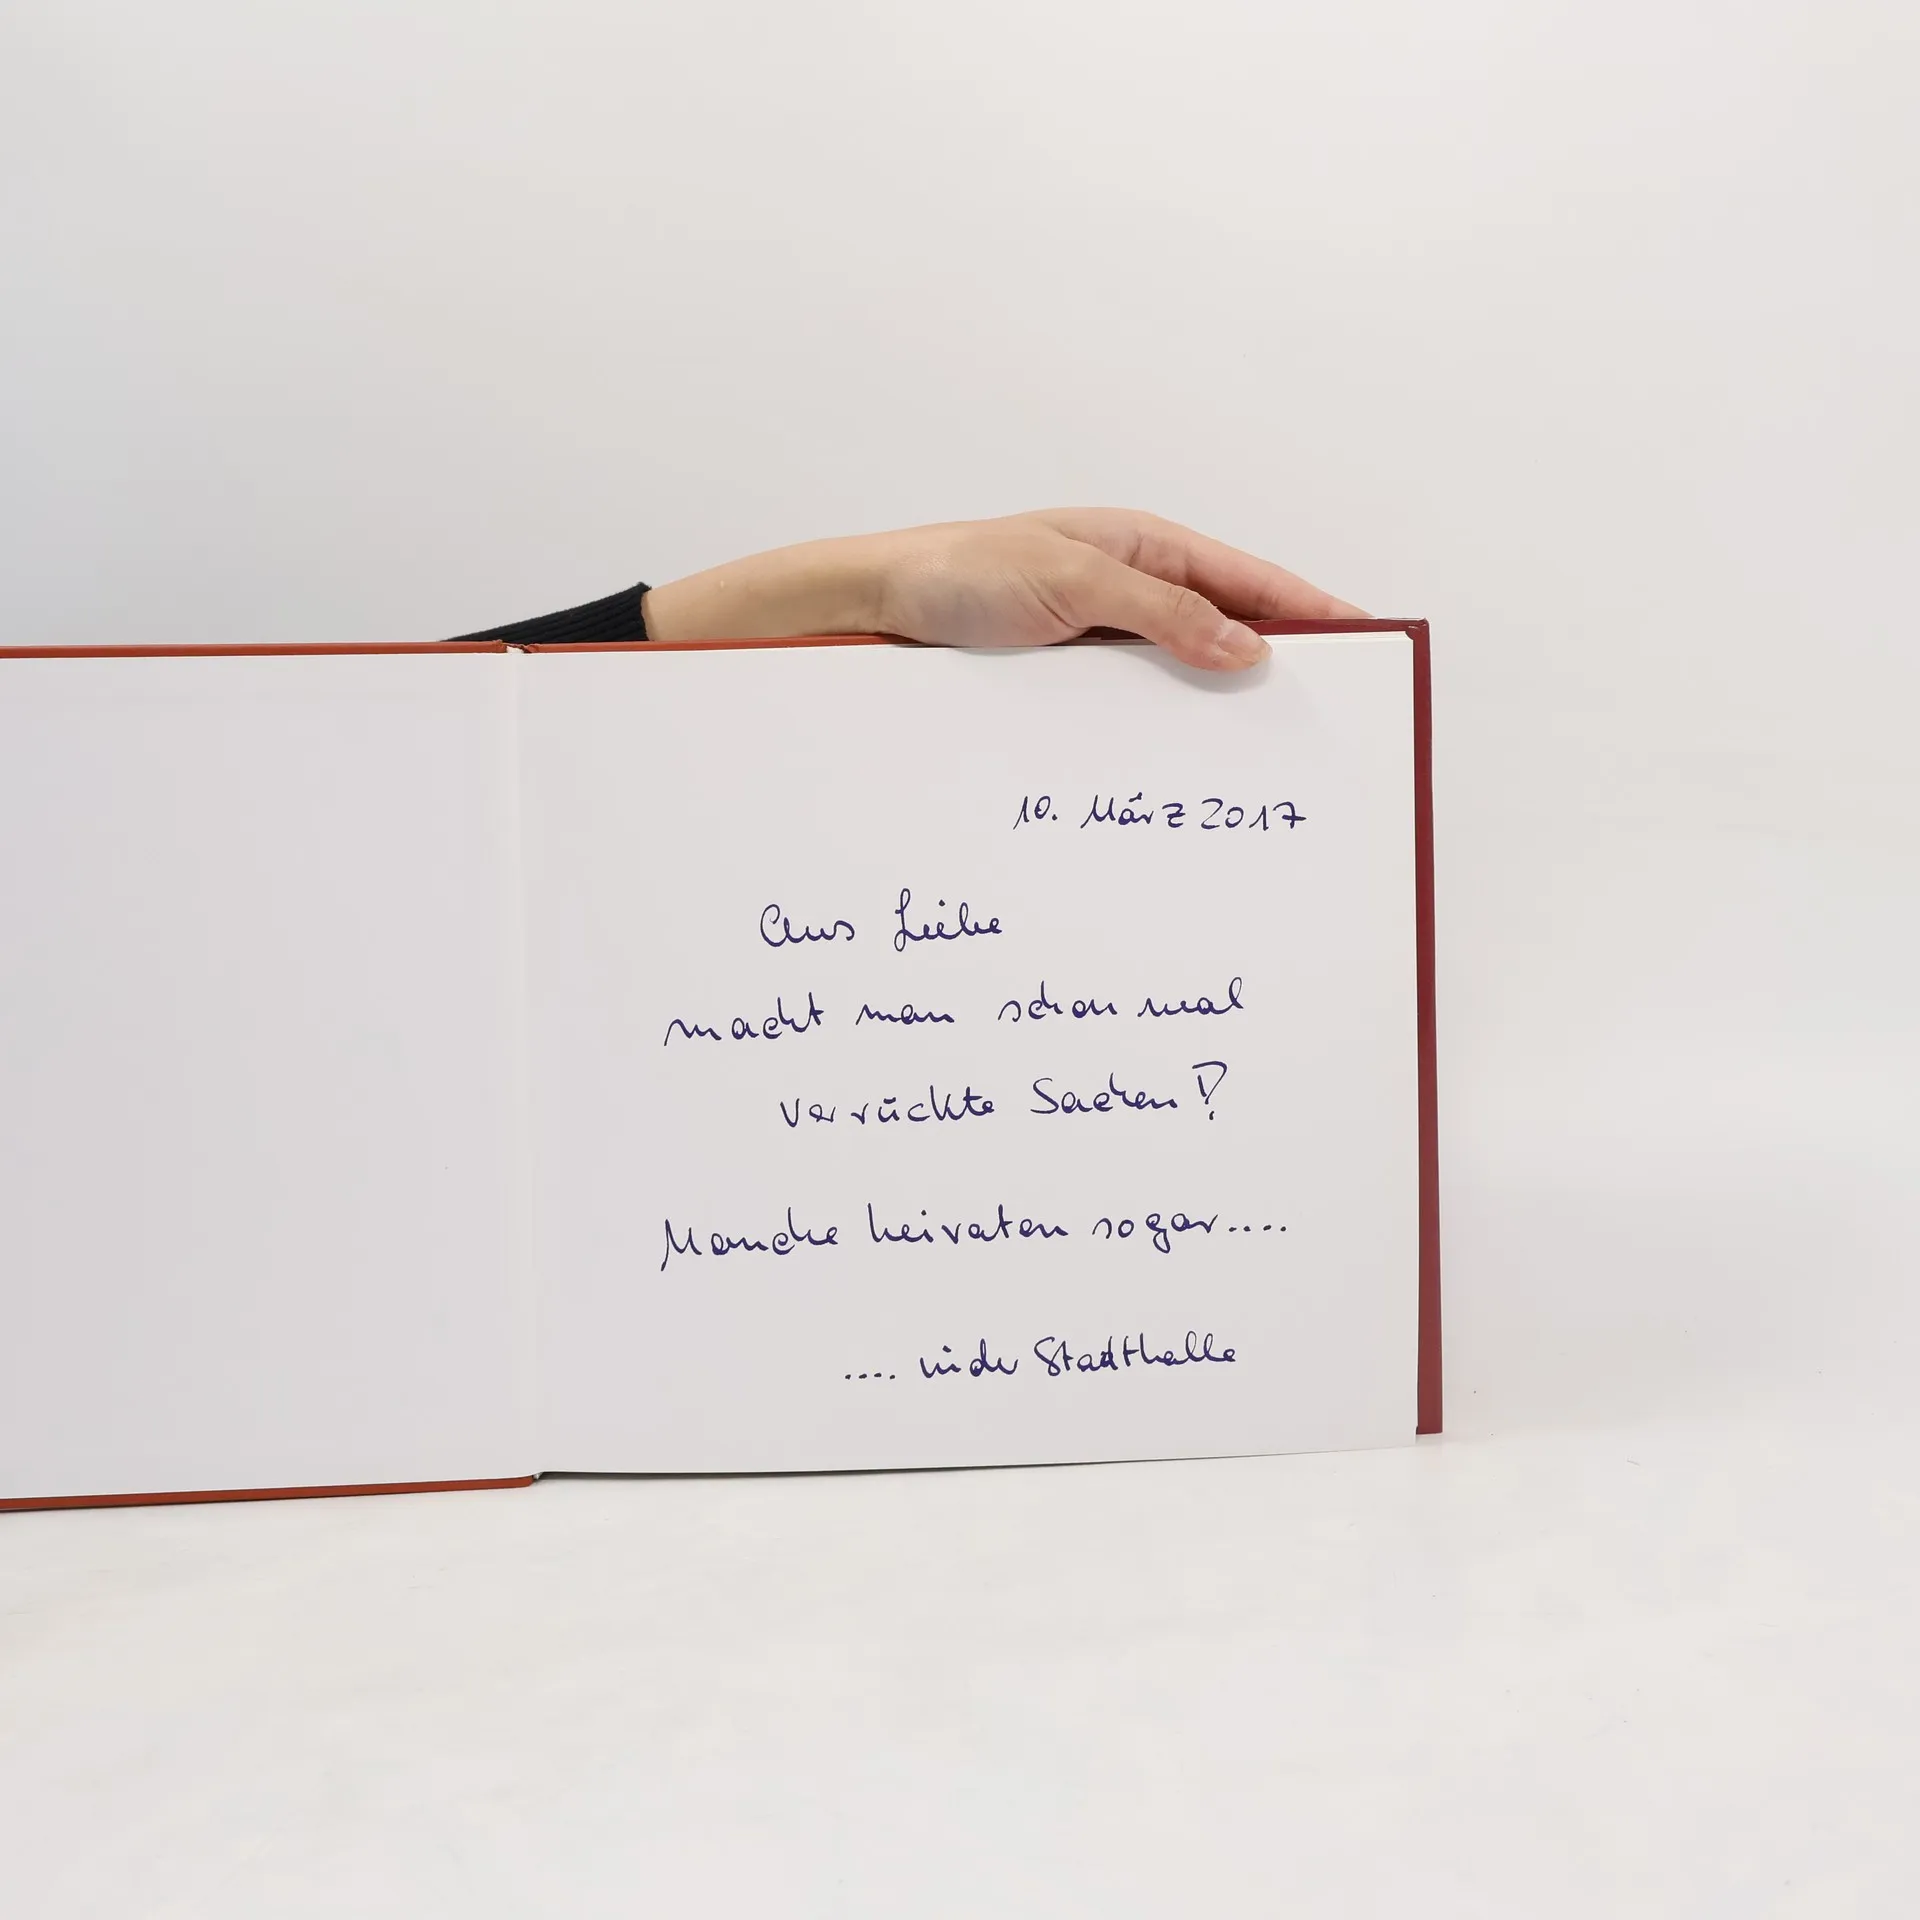 10. März 2017
Aus Liebe
macht man schon mal
verrückte Sachen?
Manche heiraten sogar....
.... in der Stadthalle